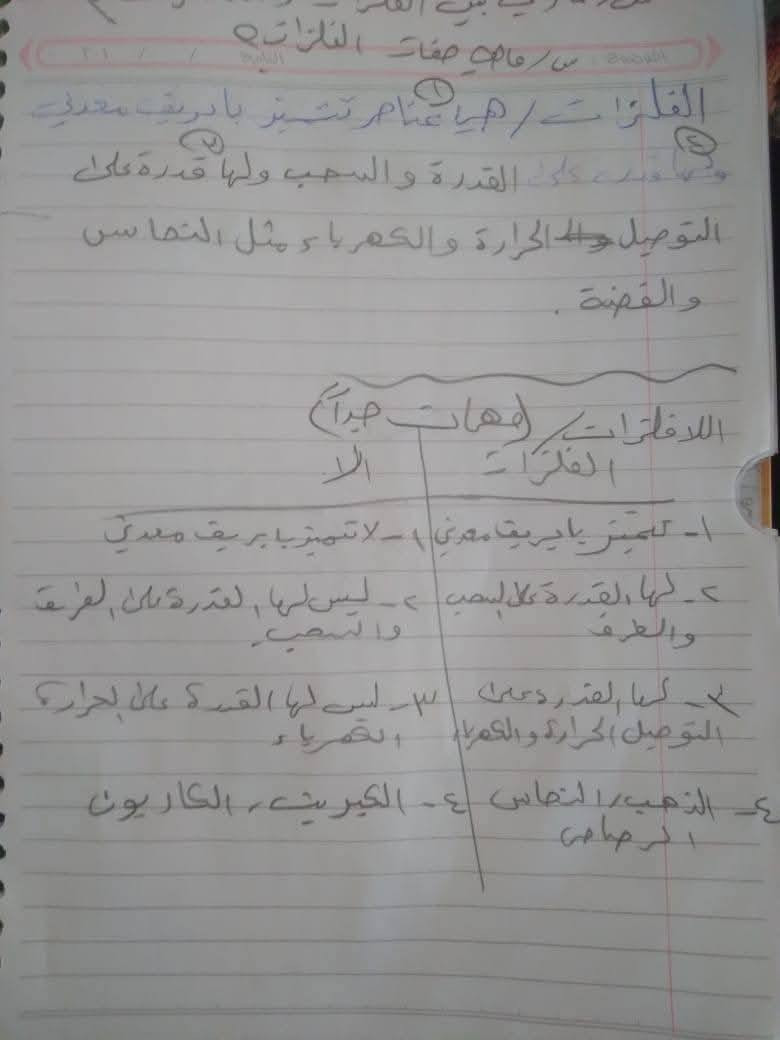 بين الفلزات
س/ ماهي صفات الفلزات؟
الفلزات/ هيا عناصر تتميز بابريق معدني
ولها قدرت على القدرة والسحب ولها قدرة على
التوصيل الحرارة والكهرباء مثل النحاس
والفضة .
اللافلزات/ (مهمات جداً)
الفلزات الا
١- تتميز بابريق معدني ١- لا تتميز بابريق معدني
٢- لها القدرة على السحب ٢- ليس لها القدرة على الطرق
والطرق والسحب.
٣- لها القدرة على ٣- ليس لها القدرة على الحرارة
التوصيل الحرارة والكهرباء الكهرباء
٤- الذهب، النحاس ٤- الكبريت، الكاربون
الرصاص